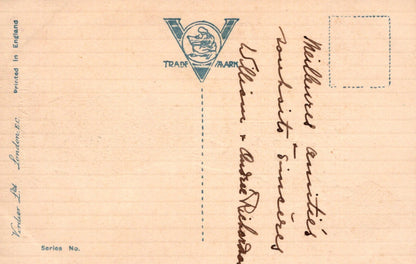 Printed in England
TRADE MARK
Meilleures amitiés
&
souhaits sincères
William & Andrée Richardson
Vivian Ltd London E.C.
Series No.